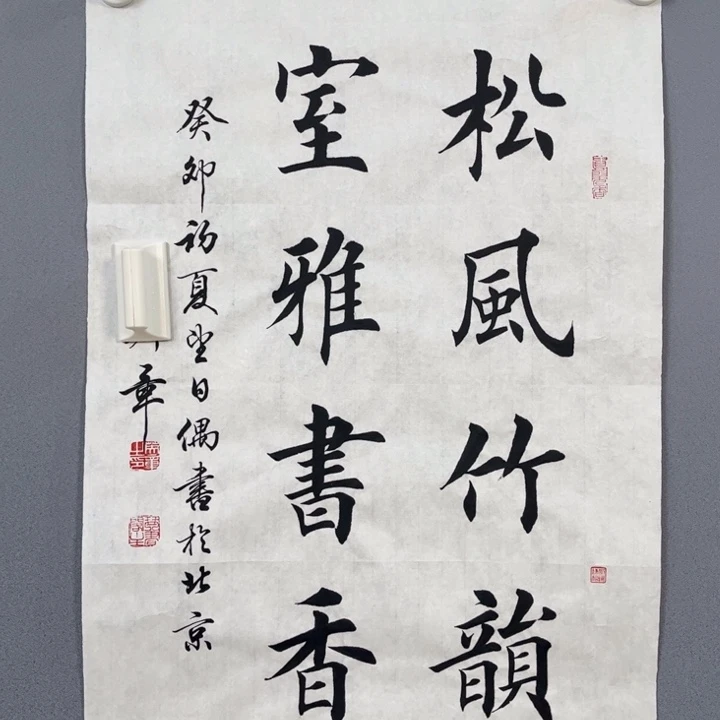 松風竹韻
室雅書香
癸卯初夏望日偶書於北京
章